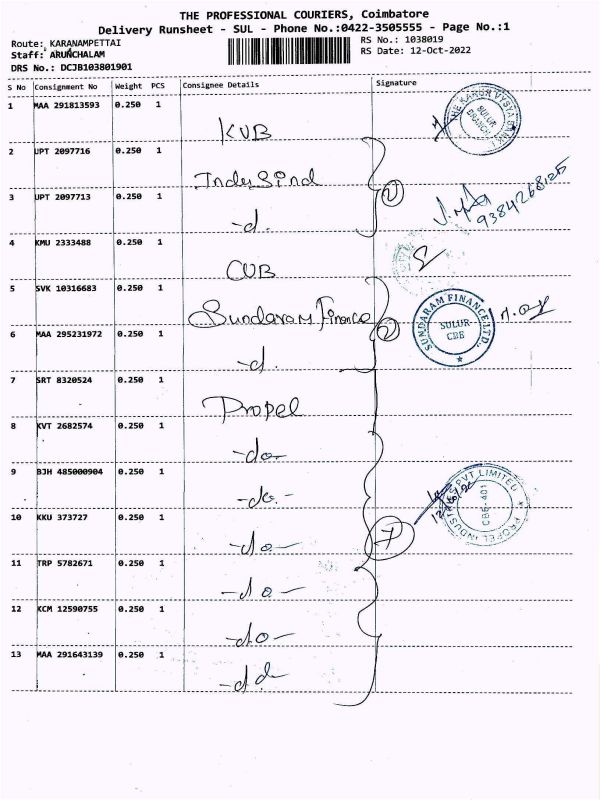 THE PROFESSIONAL COURIERS, Coimbatore
Delivery Runsheet - SUL - Phone No.:0422-3505555 - Page No.:1
Route: KARANAMPETTAI
Staff: ARUNCHALAM
DRS No.: DCJB103801901
RS No.: 1038019
RS Date: 12-Oct-2022
S No Consignment No Weight PCS Consignee Details Signature
1 MAA 291813593 0.250 1 KVB
THE KARUR VYSYA BANK
SULUR BRANCH
2 UPT 2097716 0.250 1 IndusInd
3 UPT 2097713 0.250 1 -d.
2
9384268125
4 KMU 2333488 0.250 1 CUB
5 SVK 10316683 0.250 1 Sundaram Finance
6 MAA 295231972 0.250 1 -d.
2
SUNDARAM FINANCE LTD.
SULUR
CBE
7 SRT 8320524 0.250 1 Propel
8 KVT 2682574 0.250 1 -do-
9 BJH 485000904 0.250 1 -do-
10 KKU 373727 0.250 1 -do-
7
PROPEL INDUSTRIES PVT LIMITED
CBE-401
11 TRP 5782671 0.250 1 -do-
12 KCM 12590755 0.250 1 -do-
13 MAA 291643139 0.250 1 -d d-